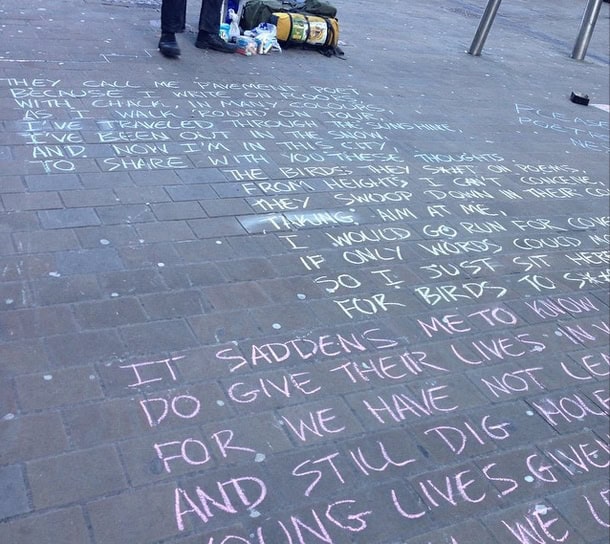 THEY CALL ME PAVEMENT POET,
BECAUSE I WRITE ON FLOORS,
WITH CHALK, IN MANY COLOURS,
AS I WALK 'ROUND ON TOUR,
I'VE TRAVELED THROUGH SUNSHINE,
I'VE BEEN OUT IN THE SNOW
AND NOW I'M IN THIS CITY
TO SHARE WITH YOU THESE THOUGHTS
THE BIRDS THEY SH*T ON POEMS,
FROM HEIGHTS I CAN'T CONCEIVE
THEY SWOOP DOWN IN THEIR CO
TAKING AIM AT ME,
I WOULD GO RUN FOR COVE
IF ONLY WORDS COULD M
SO I JUST SIT HERE
FOR BIRDS TO SH*
IT SADDENS ME TO KNOW
DO GIVE THEIR LIVES IN
FOR WE HAVE NOT LE
AND STILL DIG HOLE
YOUNG LIVES GIVE
WE L
PLEASE
POETR